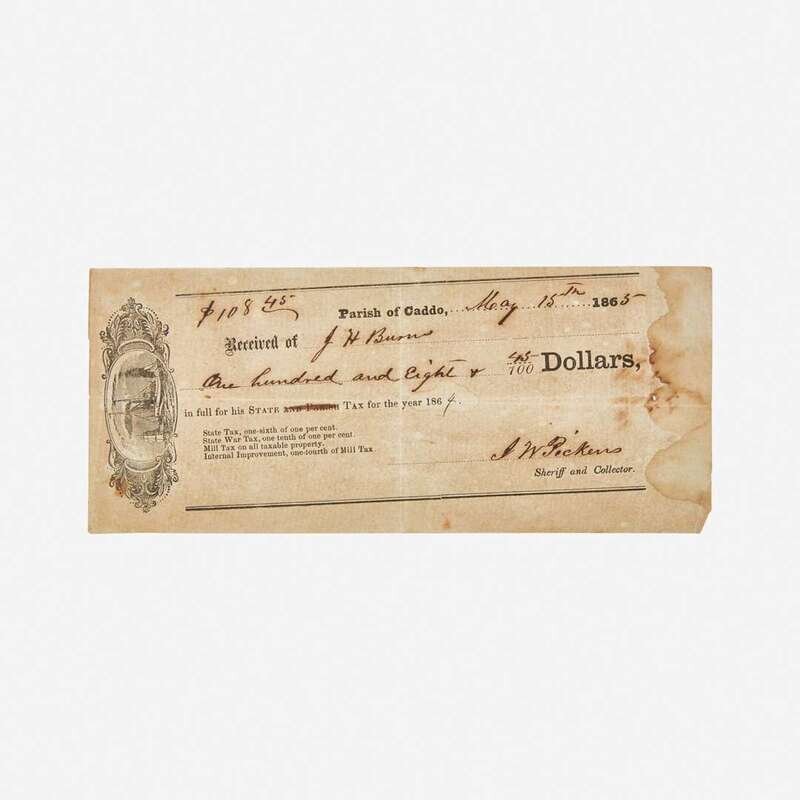 $108 45
Parish of Caddo, May 15th 1865
Received of J H Burns
One hundred and Eight & 45/100 Dollars,
in full for his STATE AND PARISH TAX for the year 1864.
State Tax, one-sixth of one per cent.
State War Tax, one tenth of one per cent.
Mill Tax on all taxable property.
Internal Improvement, one-fourth of Mill Tax
J W Pickens
Sheriff and Collector.